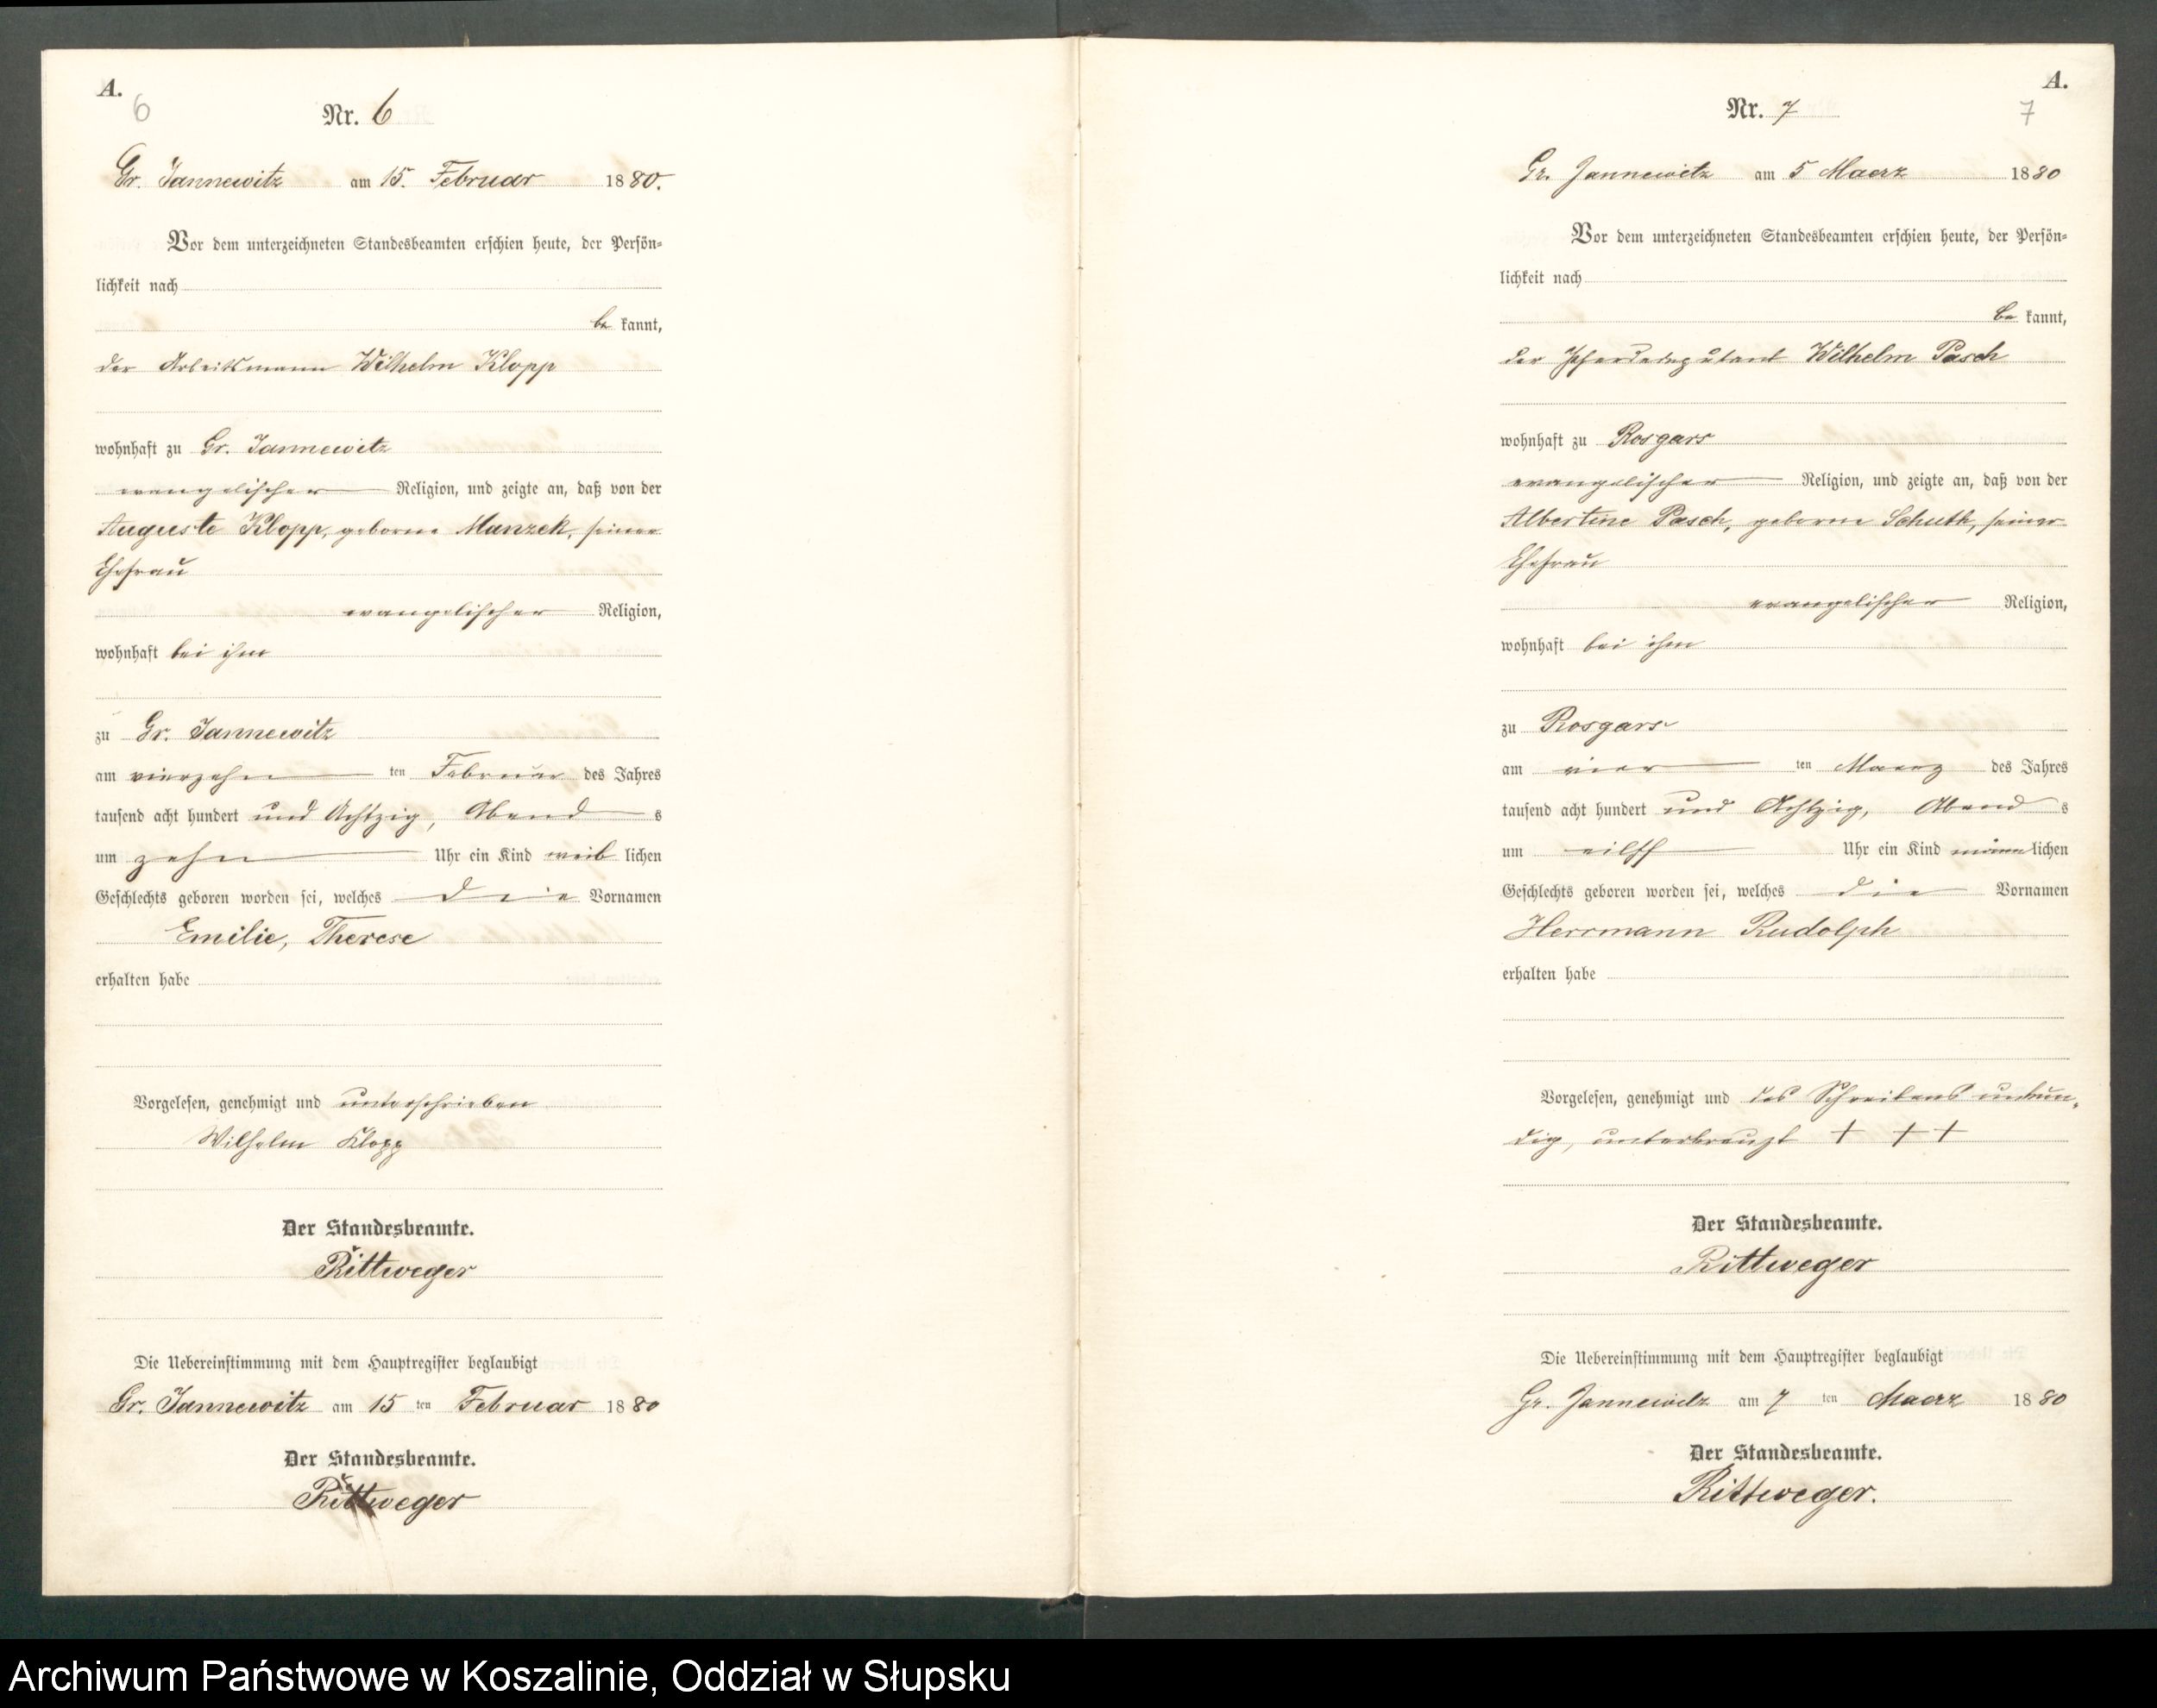 A.
6
Nr. 6
Gr. Jannewitz am 15. Februar 1880.
Vor dem unterzeichneten Standesbeamten erschien heute, der Persön-
lichkeit nach
be kannt,
der Arbeitsmann Wilhelm Klopp
wohnhaft zu Gr. Jannewitz
evangelischer Religion, und zeigte an, daß von der
Auguste Klopp, geborne Manzek, seiner
Ehefrau
evangelischer Religion,
wohnhaft bei ihm
zu Gr. Jannewitz
am vierzehn ten Februar des Jahres
tausend acht hundert und Achtzig, Abend s
um zehn Uhr ein Kind weib lichen
Geschlechts geboren worden sei, welches die Vornamen
Emilie, Therese
erhalten habe
Vorgelesen, genehmigt und unterschrieben
Wilhelm Klopp
Der Standesbeamte.
Rittweger
Die Uebereinstimmung mit dem Hauptregister beglaubigt
Gr. Jannewitz am 15 ten Februar 1880
Der Standesbeamte.
Rittweger
A.
7
Nr. 7
Gr. Jannewitz am 5 Maerz 1880
Vor dem unterzeichneten Standesbeamten erschien heute, der Persön-
lichkeit nach
be kannt,
der Pferdedeputant Wilhelm Pasch
wohnhaft zu Rosgars
evangelischer Religion, und zeigte an, daß von der
Albertine Pasch, geborne Schuth, seiner
Ehefrau
evangelischer Religion,
wohnhaft bei ihm
zu Rosgars
am vier ten Maerz des Jahres
tausend acht hundert und Achtzig, Abend s
um eilff Uhr ein Kind männ lichen
Geschlechts geboren worden sei, welches die Vornamen
Herrmann Rudolph
erhalten habe
Vorgelesen, genehmigt und des Schreibens unkun-
dig, unterkreuzt + + +
Der Standesbeamte.
Rittweger
Die Uebereinstimmung mit dem Hauptregister beglaubigt
Gr. Jannewitz am 7 ten Maerz 1880
Der Standesbeamte.
Rittweger.
Archiwum Państwowe w Koszalinie, Oddział w Słupsku